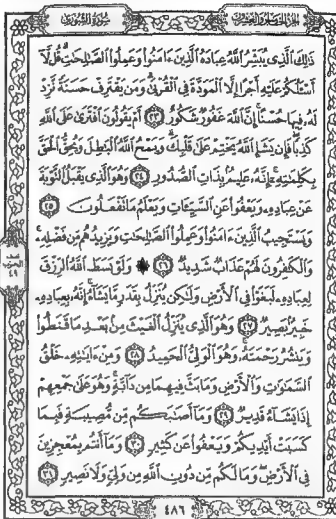 الجزء الخامس والعشرون سورة الشورى
ذَٰلِكَ ٱلَّذِى يُبَشِّرُ ٱللَّهُ عِبَادَهُ ٱلَّذِينَ ءَامَنُوا۟ وَعَمِلُوا۟ ٱلصَّٰلِحَٰتِ ۗ قُل لَّآ
أَسْـَٔلُكُمْ عَلَيْهِ أَجْرًا إِلَّا ٱلْمَوَدَّةَ فِى ٱلْقُرْبَىٰ ۗ وَمَن يَقْتَرِفْ حَسَنَةً نَّزِدْ
لَهُۥ فِيهَا حُسْنًا ۚ إِنَّ ٱللَّهَ غَفُورٌ شَكُورٌ ٢٣ أَمْ يَقُولُونَ ٱفْتَرَىٰ عَلَى ٱللَّهِ
كَذِبًا ۖ فَإِن يَشَإِ ٱللَّهُ يَخْتِمْ عَلَىٰ قَلْبِكَ ۗ وَيَمْحُ ٱللَّهُ ٱلْبَٰطِلَ وَيُحِقُّ ٱلْحَقَّ
بِكَلِمَٰتِهِۦٓ ۚ إِنَّهُۥ عَلِيمٌۢ بِذَاتِ ٱلصُّدُورِ ٢٤ وَهُوَ ٱلَّذِى يَقْبَلُ ٱلتَّوْبَةَ
عَنْ عِبَادِهِۦ وَيَعْفُوا۟ عَنِ ٱلسَّيِّـَٔاتِ وَيَعْلَمُ مَا تَفْعَلُونَ ٢٥
وَيَسْتَجِيبُ ٱلَّذِينَ ءَامَنُوا۟ وَعَمِلُوا۟ ٱلصَّٰلِحَٰتِ وَيَزِيدُهُم مِّن فَضْلِهِۦ ۚ
وَٱلْكَٰفِرُونَ لَهُمْ عَذَابٌ شَدِيدٌ ٢٦ ۞ وَلَوْ بَسَطَ ٱللَّهُ ٱلرِّزْقَ
لِعِبَادِهِۦ لَبَغَوْا۟ فِى ٱلْأَرْضِ وَلَٰكِن يُنَزِّلُ بِقَدَرٍ مَّا يَشَآءُ ۚ إِنَّهُۥ بِعِبَادِهِۦ
خَبِيرٌۢ بَصِيرٌ ٢٧ وَهُوَ ٱلَّذِى يُنَزِّلُ ٱلْغَيْثَ مِنۢ بَعْدِ مَا قَنَطُوا۟
وَيَنشُرُ رَحْمَتَهُۥ ۚ وَهُوَ ٱلْوَلِىُّ ٱلْحَمِيدُ ٢٨ وَمِنْ ءَايَٰتِهِۦ خَلْقُ
ٱلسَّمَٰوَٰتِ وَٱلْأَرْضِ وَمَا بَثَّ فِيهِمَا مِن دَآبَّةٍ ۚ وَهُوَ عَلَىٰ جَمْعِهِمْ
إِذَا يَشَآءُ قَدِيرٌ ٢٩ وَمَآ أَصَٰبَكُم مِّن مُّصِيبَةٍ فَبِمَا
كَسَبَتْ أَيْدِيكُمْ وَيَعْفُوا۟ عَن كَثِيرٍ ٣٠ وَمَآ أَنتُم بِمُعْجِزِينَ
فِى ٱلْأَرْضِ ۖ وَمَا لَكُم مِّن دُونِ ٱللَّهِ مِن وَلِىٍّ وَلَا نَصِيرٍ ٣١
٤٨٦